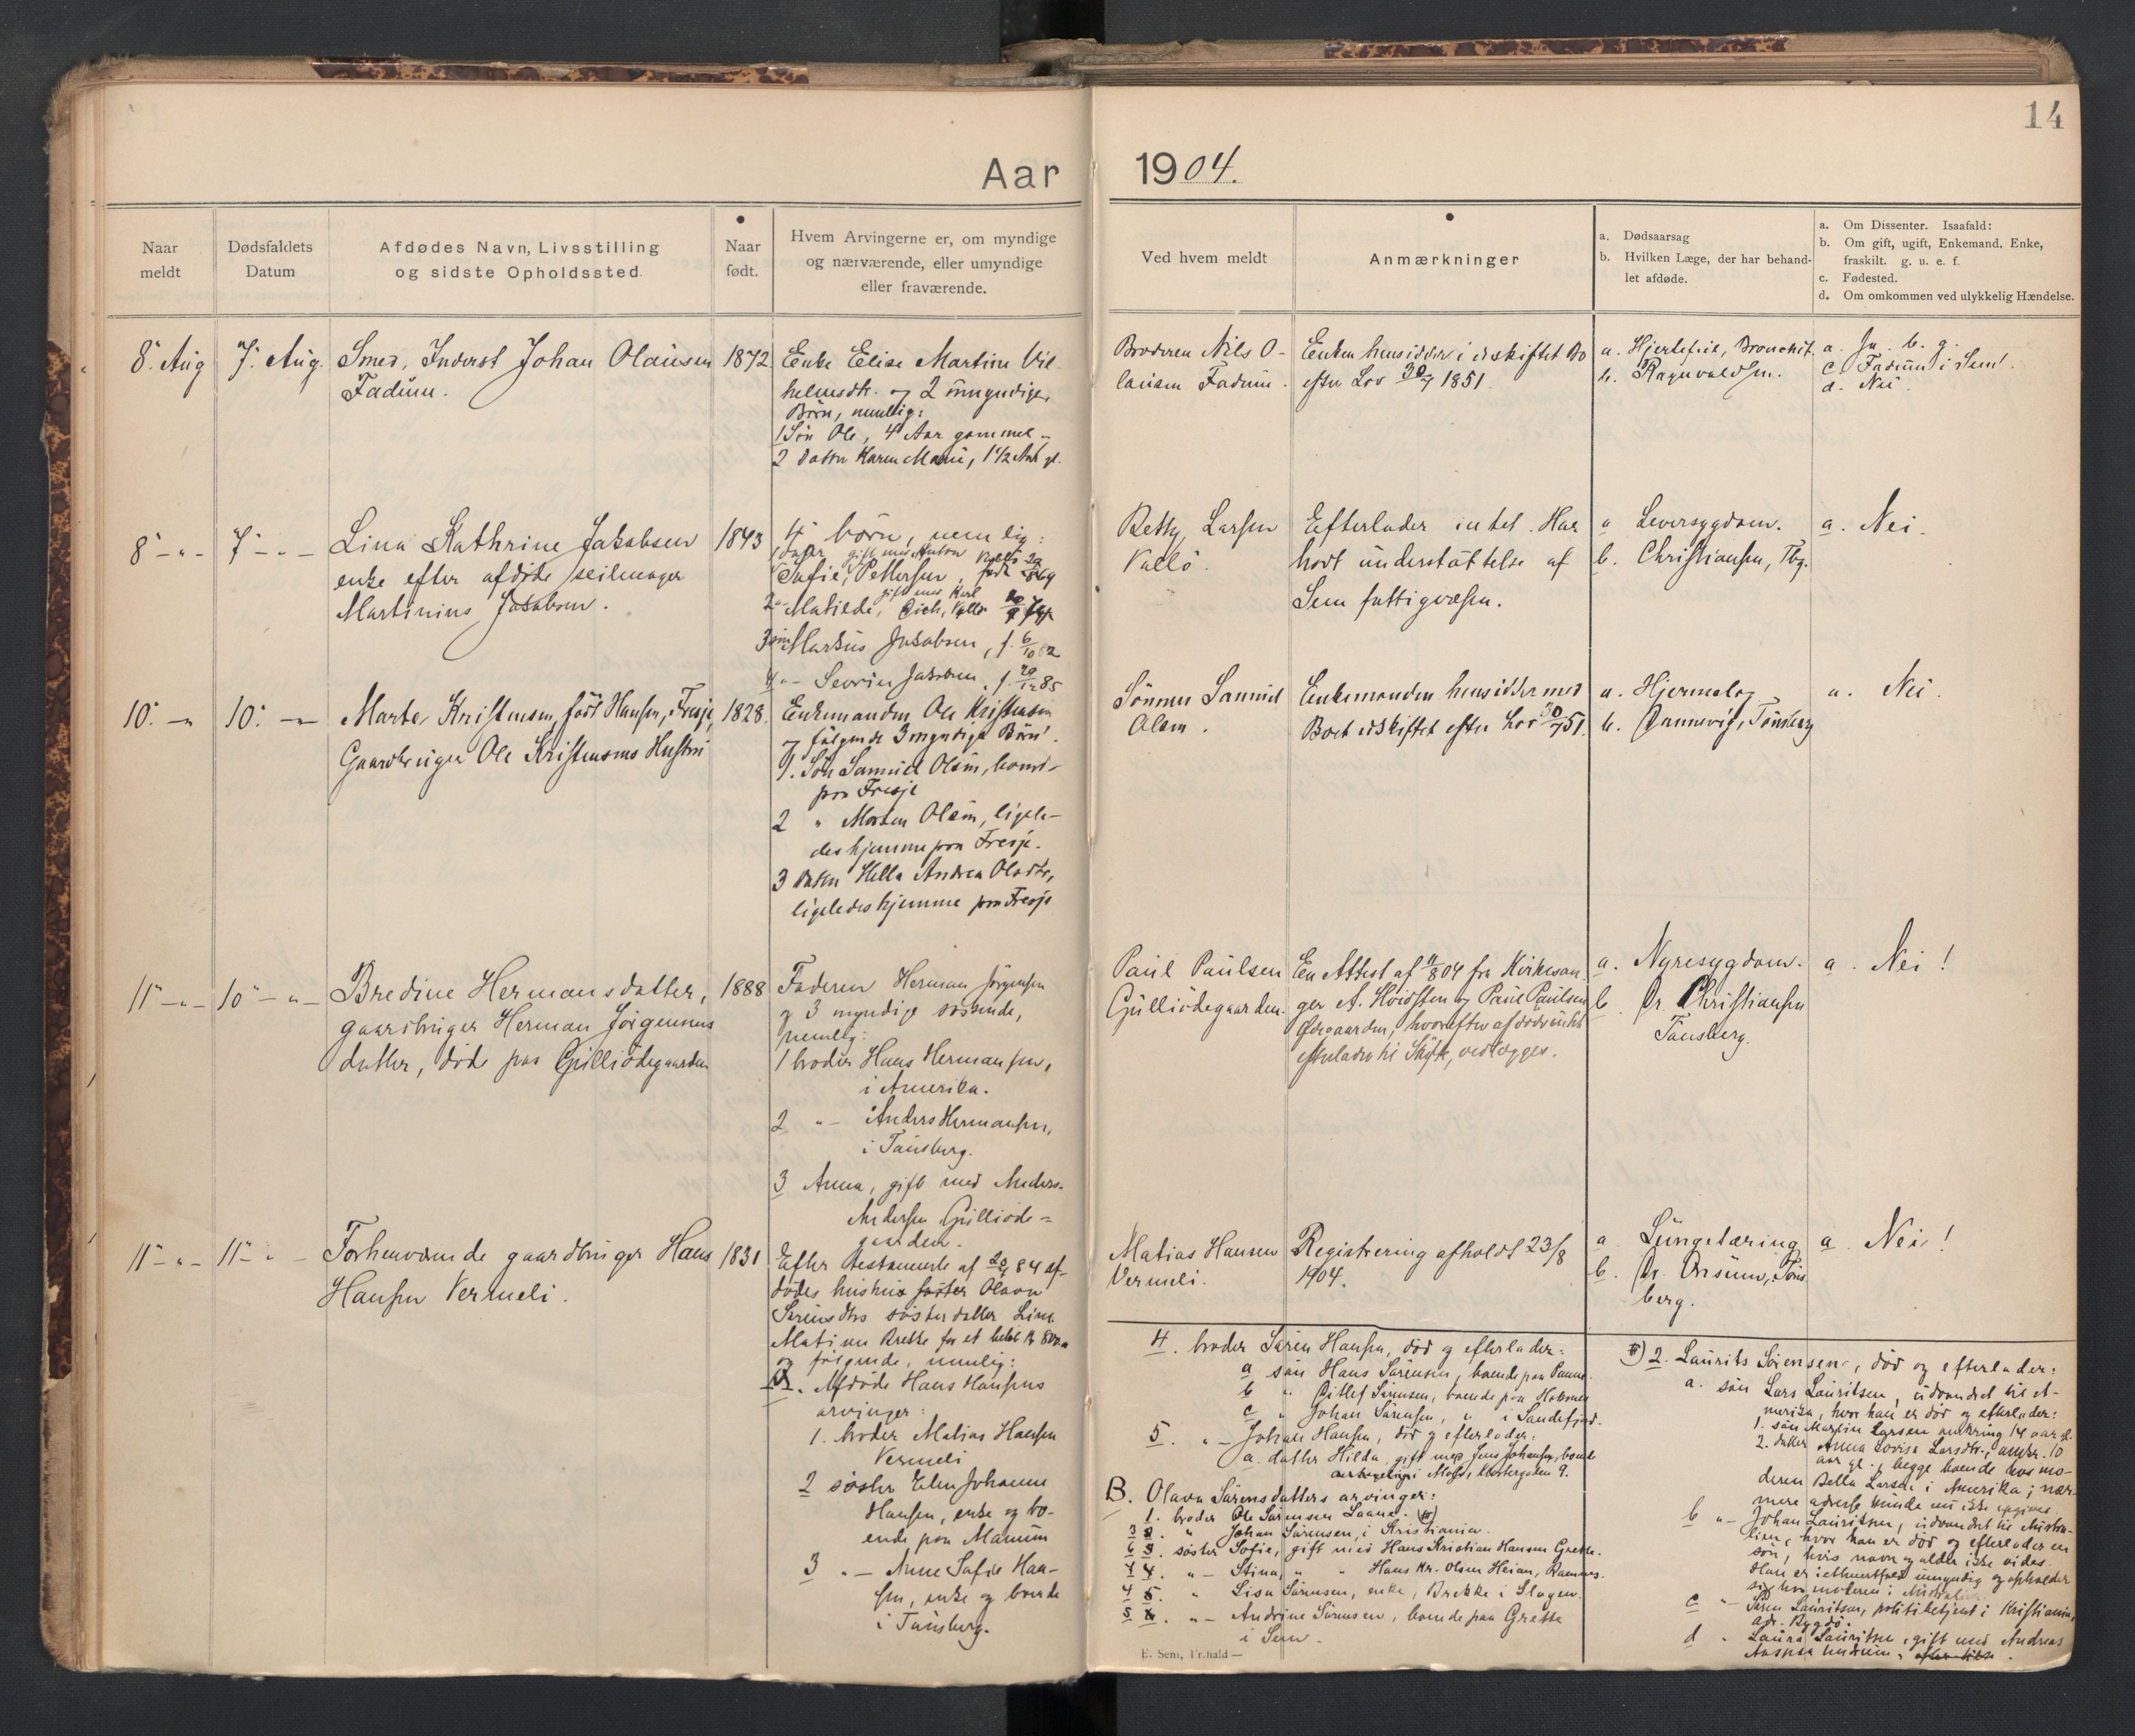 14
Aar 1904.
Naar meldt
Dødsfaldets Datum
Afdødes Navn, Livsstilling og sidste Opholdssted.
Naar født.
Hvem Arvingerne er, om myndige og nærværende, eller umyndige eller fraværende.
Ved hvem meldt
Anmærkninger
a. Dødsaarsag
b. Hvilken Læge, der har behandlet afdøde.
a. Om Dissenter. Isaafald:
b. Om gift, ugift, Enkemand, Enke, fraskilt. g. u. e. f.
c. Fødested.
d. Om omkommen ved ulykkelig Hændelse.
8. Aug
7. Aug.
Smed, Inderst Johan Olausen
Fadum.
1872
Enke Elise Martine Vil-
helmsdtr. og 2 umyndige
Børn, nemlig:
1 Søn Ole, 4 Aar gammel
2 Datter Karen Marie, 1 1/2 Aar gl.
Broderen Nils O-
lausen Fadum.
Enken hensidder i uskiftet Bo
efter Lov 30/7 1851.
a. Hjertefeil, Bronchit.
b. Ragnvaldsen.
a. Ja. b. g.
c. Fadum i Sem.
d. Nei
8 - " -
7 - " -
Lina Kathrine Jakobsen
enke efter afdøde seilmager
Martinius Jakobsen.
1843
4 børn, nemlig:
1 datter gift med Anton Vallø
Sofie, Pettersen, født 29/ 69
gift med Karl
2 " Matilde, Eich, Vallø
3 søn Markus Jakobsen, f. 6/10 82
4 " - Severin Jakobsen, f. 20/12 85
Betty Larsen
Vallø.
Efterlader intet. Har
havt understøttelse af
Sem fattigvæsen.
a. Leversygdom.
b. Christiansen, Tbg.
a. Nei.
10. - "
10. - "
Marte Kristensen, født Hansen, Fresje,
Gaardbruger Ole Kristensens Hustru
1828.
Enkemanden Ole Kristensen
og følgende 3 myndige Børn:
1. Søn Samuel Olsen, hjemme
paa Fresje
2 " Morten Olsen, ligele-
des hjemme paa Fresje.
3 Datter Hella Andrea Olsdtr.,
ligeledes hjemme paa Fresje
Sønnen Samuel
Olsen.
Enkemanden hensidder med
Boet uskiftet efter Lov 30/7 51.
a. Hjerneslag
b. Tønsberg
a. Nei.
11 - " -
10 - " -
Bredine Hermansdatter,
gaardbruger Herman Jørgensens
datter, døde paa Gulliødegaarden
1888
Faderen Herman Jørgensen
og 3 myndige søskende,
nemlig:
1 broder Hans Hermansen,
i Amerika.
2 " - Anders Hermansen,
i Tønsberg.
3 Anna, gift med Anders
Andersen Gulliøde-
gaarden.
Paul Paulsen
Gulliødegaarden.
En Attest af 11/8 04 fra Kirkesan-
ger A. Høidsten og Paul Paulsen
Ødegaarden, hvorefter afdøde intet
efterlader til Skifte, vedlægges.
a. Nyresygdom.
b. Dr. Christiansen
Tønsberg.
a. Nei!
11 - " -
11 - " -
Forhenværende gaardbruger Hans
Hansen Vermeli.
1831
Efter testamente af 84 af-
dødes hustrus søster Olava
Sørensdtrs søsterdatter Lina
Matine Brekke for et beløb Kr 800
og følgende, nemlig:
A. Afdøde Hans Hansens
arvinger:
1. broder Matias Hansen
Vermeli
2 søster Elen Johanne
Hansen, enke og bo-
ende paa Manum
3 " - Anne Sofie Han-
sen, enke og boende
i Tønsberg.
Matias Hansen
Vermeli.
Registrering afholdt 23/8
1904.
a. Lungetæring
b. Dr. Tøns-
berg.
a. Nei!
4. broder Søren Hansen, død og efterlader:
a søn Hans Sørensen, boende paa
b " Ditlef Sørensen, boende paa
c " Johan Sørensen, " i Sandefjord.
5. " - Johan Hansen, død og efterlader:
a. datter Hilda, gift med Jens Johansen, boende
i Moss, Klostergaden 9.
B. Olava Sørensdatters arvinger:
1. broder Ole Sørensen Laane. #)
3 " Johan Sørensen, i Kristiania.
6 søster Sofie, gift med Hans Kristian Hansen Grette.
7 " - Stina, " " Hans Kr. Olsen Heian, Ramnes.
4 " Lisa Sørensen, enke, Brekke i Slagen.
5 " - Andrine Sørensen, boende paa Grette
i Sem.
#) 2. Laurits Sørensen, død og efterlader:
a. søn Lars Lauritsen, udvandret til A-
merika, hvor han er død og efterlader:
1. søn Martin Larsen omkring 14 aar gl.
2. datter Anna Lovise Larsdtr., omkr. 10
aar gl., begge boende hos mo-
deren Bella Larsen i Amerika; nær-
mere adresse kunde nu ikke opgives.
b " - Johan Lauritsen, udvandret til Austra-
lien, hvor han er død og efterlader en
søn, hvis navn og alder ikke vides.
Han er i ethvertfald umyndig og opholder
sig hos moderen i Australien.
c " - Søren Lauritsen, politibetjent i Kristiania,
adr. Bygdø.
d " Laura Lauritsen, gift med Andreas
E. Sem, Fr.hald —